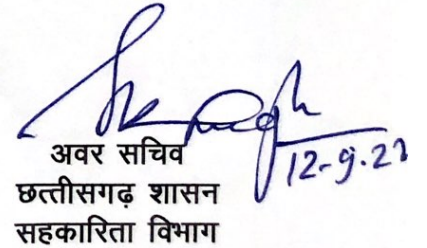 12-9.23
अवर सचिव
छत्तीसगढ़ शासन
सहकारिता विभाग